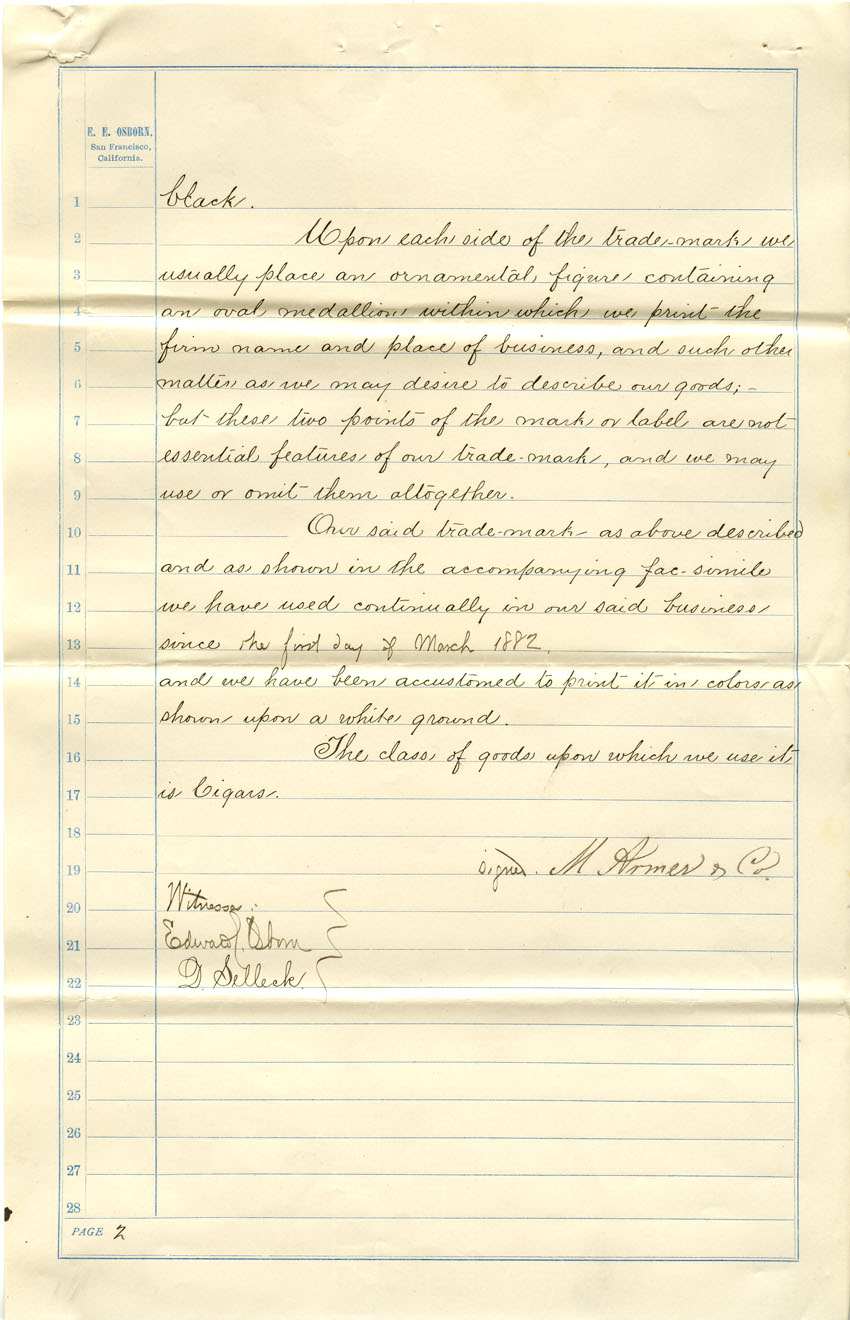 E. E. OSBORN,
San Francisco,
California.
1 black.
2 Upon each side of the trade-mark we
3 usually place an ornamental figure containing
4 an oval medallion within which we print the
5 firm name and place of business, and such other
6 matter as we may desire to describe our goods; –
7 but these two points of the mark or label are not
8 essential features of our trade-mark, and we may
9 use or omit them altogether.
10 Our said trade-mark – as above described
11 and as shown in the accompanying fac-simile
12 we have used continually in our said business
13 since the first day of March 1882,
14 and we have been accustomed to print it in colors as
15 shown upon a white ground.
16 The class of goods upon which we use it
17 is Cigars.
18
19 signed. M Armer & Co.
20 Witnesses:
21 Edward Osborn
22 D. Selleck.
23
24
25
26
27
28
PAGE 2